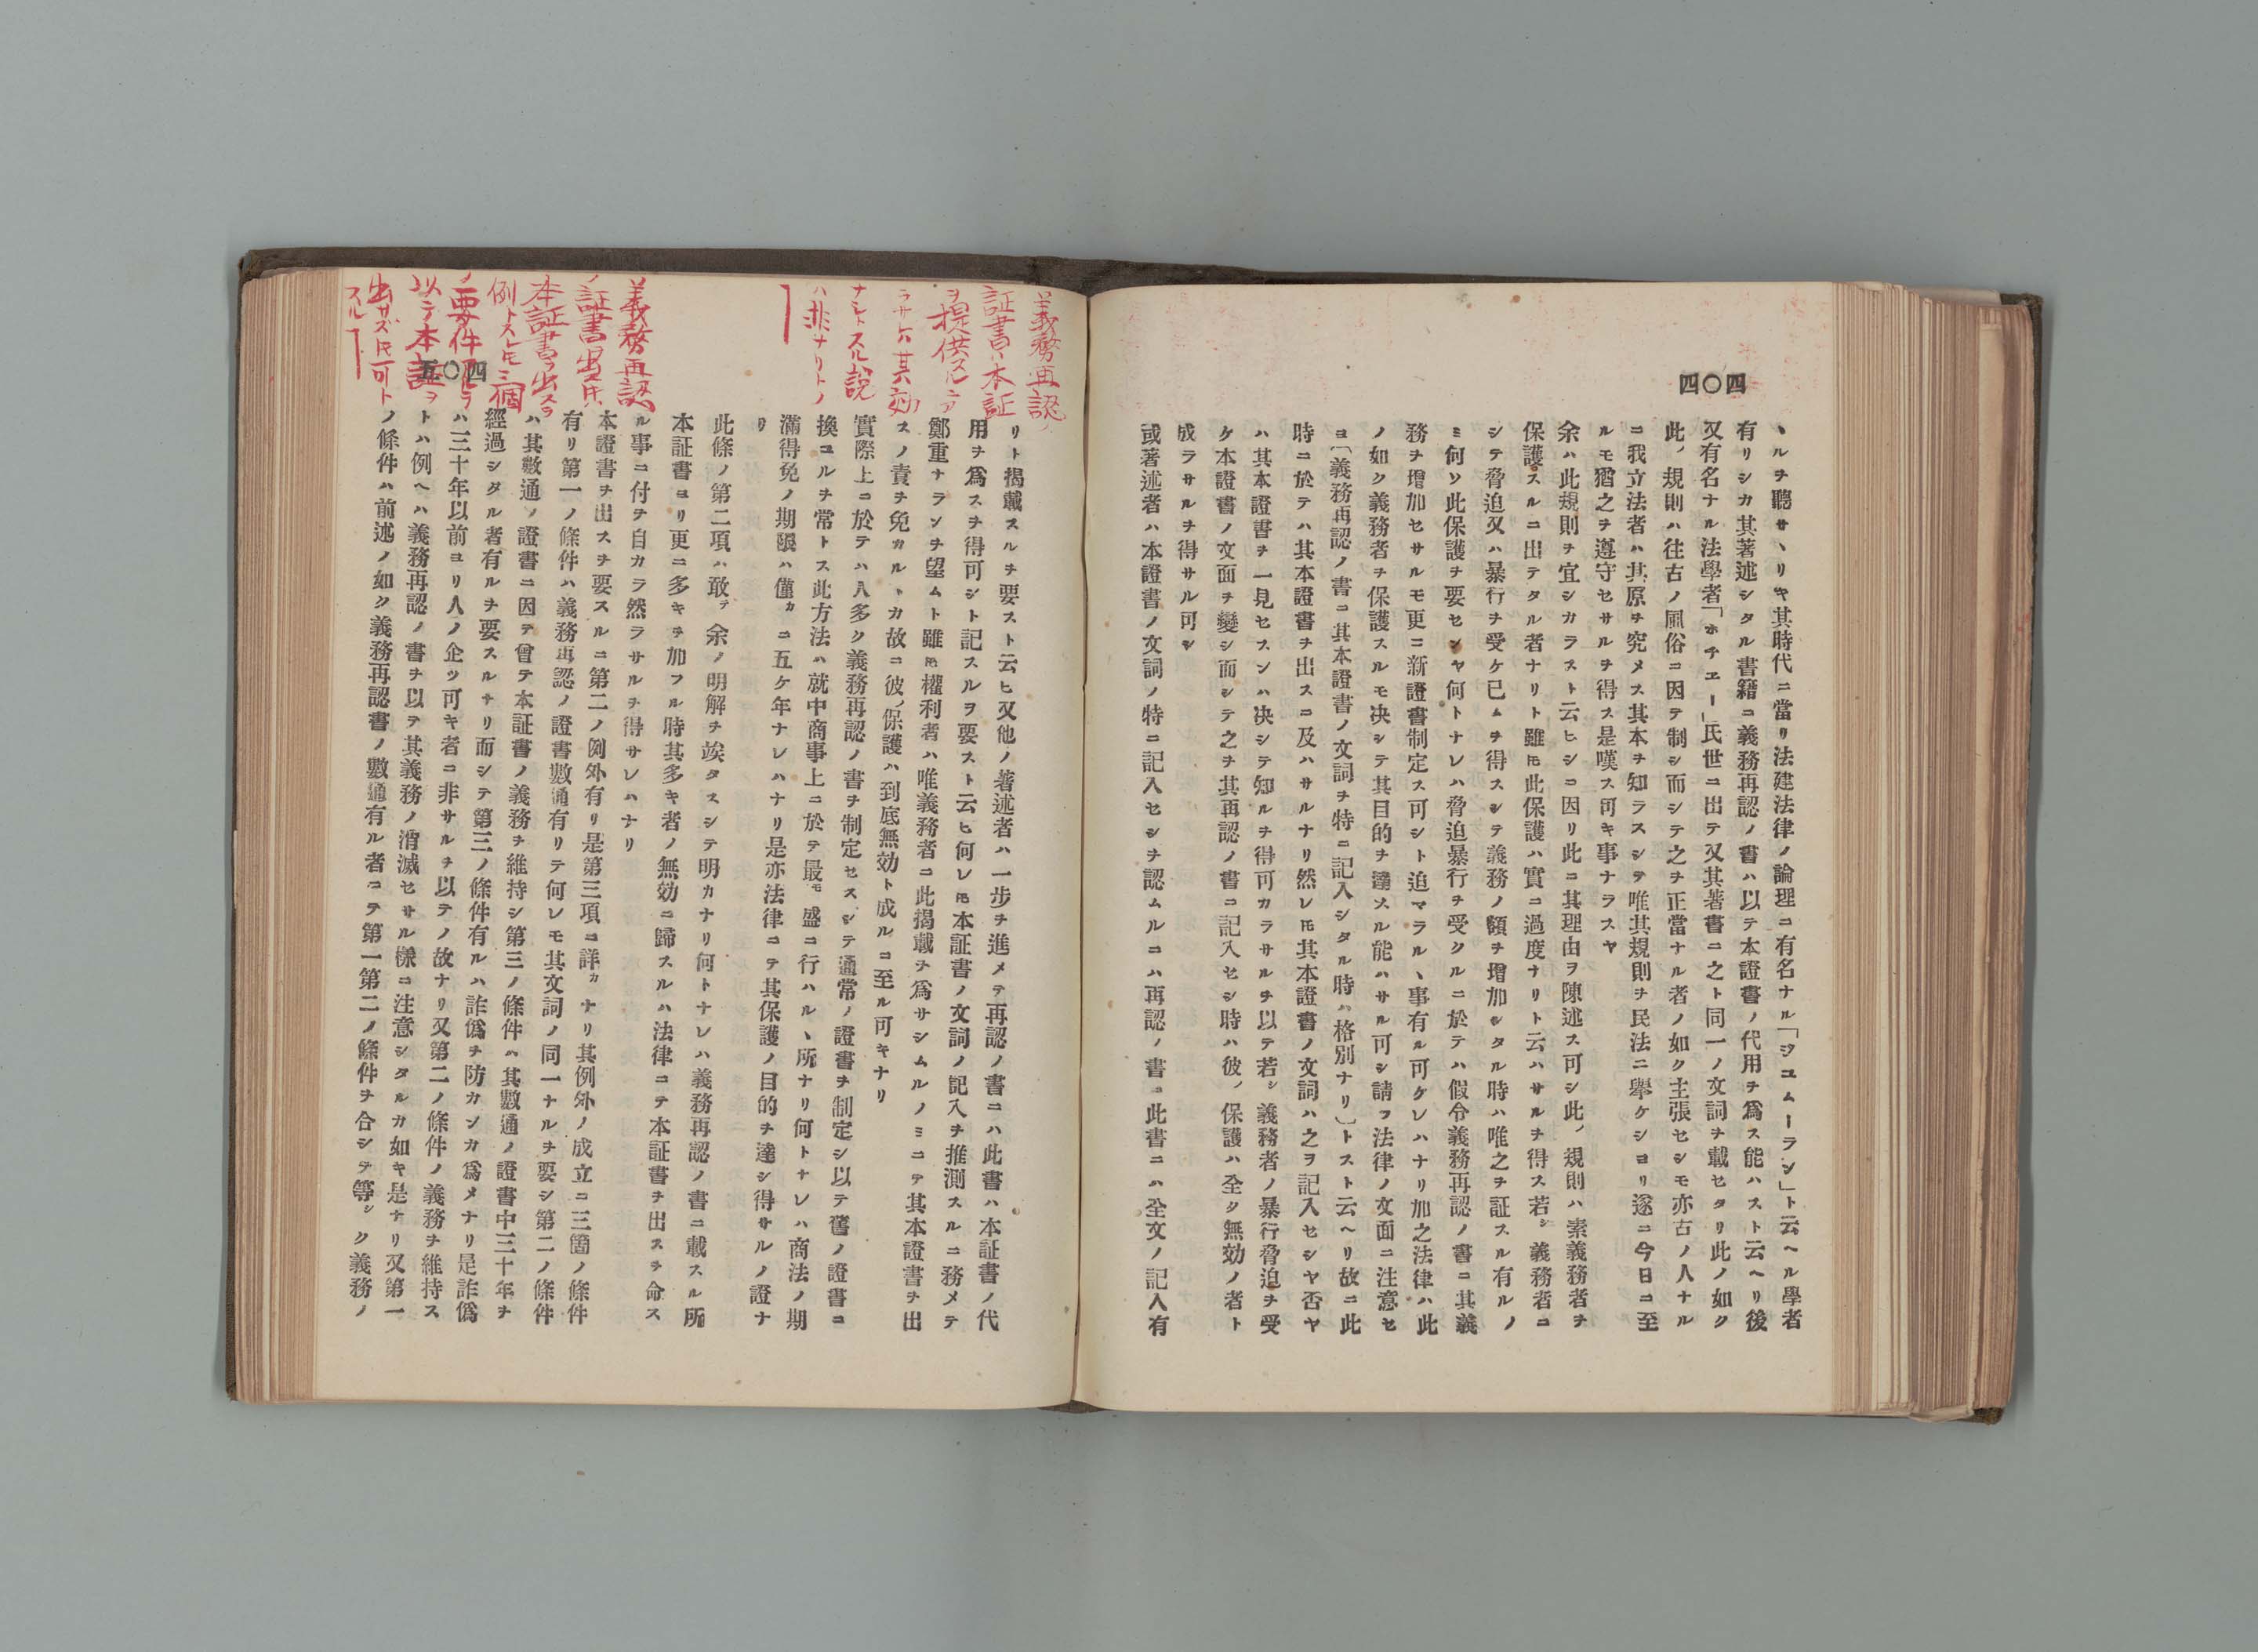 四〇四
ヽルヲ聽サヽリキ其時代ニ當リ法建法律ノ論理ニ有名ナル「ヲユムーラン」ト云ヘル學者
有リシカ其著述シタル書籍ニ義務再認ノ書ハ以テ本證書ノ代用ヲ爲ス能ハスト云ヘリ後
又有名ナル法學者「ホチエー」氏世ニ出テ又其著書ニ之ト同一ノ文詞ヲ載セタリ此ノ如ク
此ノ規則ハ往古ノ風俗ニ因テ制シ而シテ之ヲ正當ナル者ノ如ク主張セシモ亦古ノ人ナル
ニ我立法者ハ其原ヲ究メス其本ヲ知ラスシテ唯其規則ヲ民法ニ舉ケシヨリ遂ニ今日ニ至
ルモ猶之ヲ遵守セサルヲ得ス是嘆ス可キ事ナラスヤ
余ハ此規則ヲ宜シカラスト云ヒシニ因リ此ニ其理由ヲ陳述ス可シ此ノ規則ハ素義務者ヲ
保護スルニ出テタル者ナリト雖𪜈此保護ハ實ニ過度ナリト云ハサルヲ得ス若シ義務者ニ
シテ脅迫又ハ暴行ヲ受ケ已ムヲ得スシテ義務ノ額ヲ增加シタル時ハ唯之ヲ証スル有ルノ
ミ何ソ此保護ヲ要センヤ何トナレハ脅迫暴行ヲ受クルニ於テハ假令義務再認ノ書ニ其義
務ヲ增加セサルモ更ニ新證書制定ス可シト迫マラルヽ事有ル可ケレハナリ加之法律ハ此
ノ如ク義務者ヲ保護スルモ决シテ其目的ヲ達スル能ハサル可シ請フ法律ノ文面ニ注意セ
ヨ「義務再認ノ書ニ其本證書ノ文詞ヲ特ニ記入シタル時ハ格別ナリ」トスト云ヘリ故ニ此
時ニ於テハ其本證書ヲ出スニ及ハサルナリ然レ𪜈其本證書ノ文詞ハ之ヲ記入セシヤ否ヤ
ハ其本證書ヲ一見セスンハ决シテ知ルヲ得可カラサルヲ以テ若シ義務者ノ暴行脅迫ヲ受
ケ本證書ノ文面ヲ變シ而シテ之ヲ其再認ノ書ニ記入セシ時ハ彼ノ保護ハ全ク無効ノ者ト
成ラサルヲ得サル可シ
或著述者ハ本證書ノ文詞ノ特ニ記入セシヲ認ムルニハ再認ノ書ニ此書ニハ全文ノ記入有
義務再認ノ
証書ハ本証
ヲ提供スルニア
ラサレハ其効
ナシトスル説
ハ非ナリトノ
五〇四
リト揭載スルヲ要スト云ヒ又他ノ著述者ハ一步ヲ進メテ再認ノ書ニハ此書ハ本証書ノ代
用ヲ爲スヲ得可シト記スルヲ要スト云ヒ何レ𪜈本証書ノ文詞ノ記入ヲ推測スルニ務メテ
鄭重ナランヲ望ムト雖𪜈權利者ハ唯義務者ニ此揭載ヲ爲サシムルノミニテ其本證書ヲ出
スノ責ヲ免カルヽカ故ニ彼ノ保護ハ到底無効ト成ルニ至ル可キナリ
實際上ニ於テハ人多ク義務再認ノ書ヲ制定セスシテ通常ノ證書ヲ制定シ以テ舊ノ證書ニ
換ユルヲ常トス此方法ハ就中商事上ニ於テ最モ盛ニ行ハルヽ所ナリ何トナレハ商法ノ期
滿得免ノ期限ハ僅カニ五ケ年ナレハナリ是亦法律ニテ其保護ノ目的ヲ達シ得サルノ證ナ
リ
此條ノ第二項ハ敢テ余ノ明解ヲ竢タスシテ明カナリ何トナレハ義務再認ノ書ニ載スル所
本証書ヨリ更ニ多キヲ加フル時其多キ者ノ無効ニ歸スルハ法律ニテ本証書ヲ出スヲ命ス
ル事ニ付テ自カラ然ラサルヲ得サレハナリ
本證書ヲ出スヲ要スルニ第二ノ例外有リ是第三項ニ詳カナリ其例外ノ成立ニ三箇ノ條件
有リ第一ノ條件ハ義務再認ノ證書數通有リテ何レモ其文詞ノ同一ナルヲ要シ第二ノ條件
ハ其數通ノ證書ニ因テ曾テ本証書ノ義務ヲ維持シ第三ノ條件ハ其數通ノ證書中三十年ヲ
經過シタル者有ルヲ要スルナリ而シテ第三ノ條件有ルハ詐僞ヲ防カンカ爲メナリ是詐僞
ハ三十年以前ヨリ人ノ企ツ可キ者ニ非サルヲ以テノ故ナリ又第二ノ條件ノ義務ヲ維持ス
トハ例ヘハ義務再認ノ書ヲ以テ其義務ノ消滅セサル樣ニ注意シタルカ如キ是ナリ又第一
ノ條件ハ前述ノ如ク義務再認書ノ數通有ル者ニテ第一第二ノ條件ヲ合シテ等シク義務ノ
義務再認
ノ証書ヲ出ス𪜈
本証書ヲ出スヲ
例トスレ𪜈三個
ノ要件アルヲ
以テ本証ヲ
出サズ𪜈可ト
スル